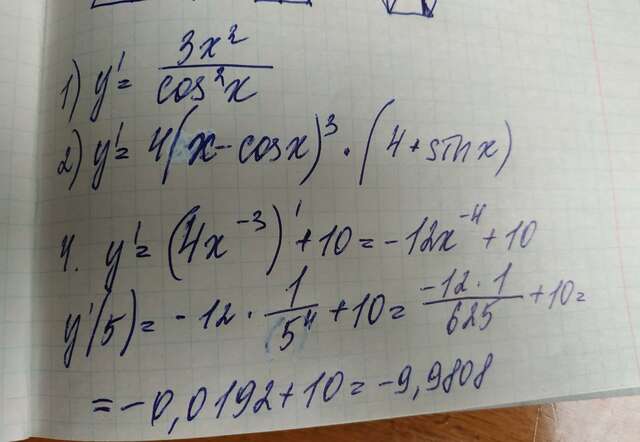 1) y' = 3x²/cos²x
2) y' = 4(x - cosx)³ · (4 + sinx)
4. y' = (4x⁻³)' + 10 = -12x⁻⁴ + 10
y'(5) = -12 · 1/5⁴ + 10 = -12 · 1/625 + 10 =
= -0,0192 + 10 = -9,9808